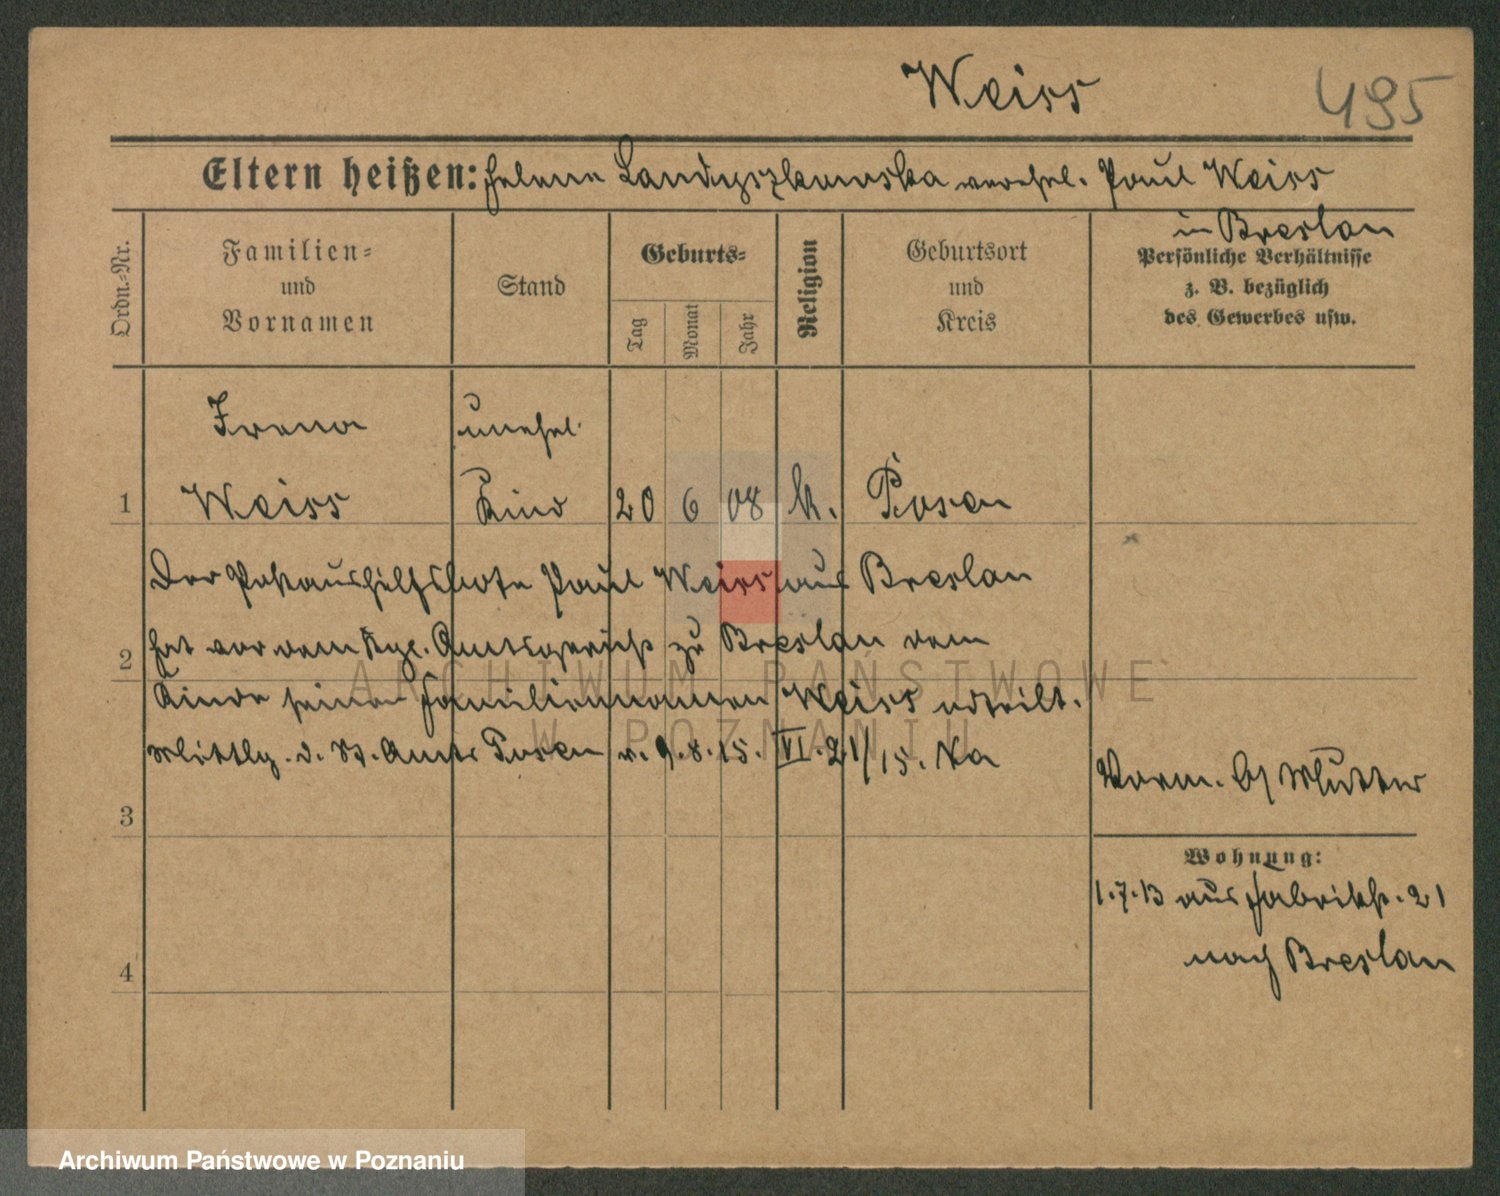 Weiss 495
Eltern heißen: Helene Landyszkowska verehel. Paul Weiss
in Breslau
Ordn.-Nr.
Familien-
und
Vornamen
Stand
Geburts-
Tag
Monat
Jahr
Religion
Geburtsort
und
Kreis
Persönliche Verhältnisse
z. B. bezüglich
des Gewerbes usw.
Irena unehel.
1 Weiss Kind 20 6 08 k. Posen
Der Postaushilfsbote Paul Weiss aus Breslau
2 hat vor dem Kgl. Amtsgericht zu Breslau dem
Kinde seinen Familiennamen Weiss erteilt.
Mittlg. d. St. Amts Posen v. 9.8.15. VI. 21/15.
Vorm. Mutter
3
Wohnung:
1.7.13 aus Fabrikstr. 21
nach Breslau
4
ARCHIWUM PAŃSTWOWE
W POZNANIU
Archiwum Państwowe w Poznaniu